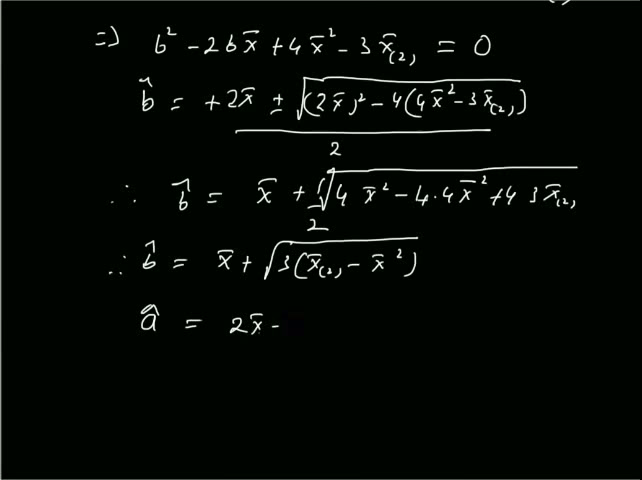 ⇒ b² - 2bx̄ + 4x̄² - 3x̄₍₂₎ = 0
b̂ = +2x̄ ± √((2x̄)² - 4(4x̄² - 3x̄₍₂₎)) / 2
∴ b̂ = x̄ + 1/2 √(4x̄² - 4·4x̄² + 4 3x̄₍₂₎
∴ b̂ = x̄ + √(3(x̄₍₂₎ - x̄²))
â = 2x̄ -